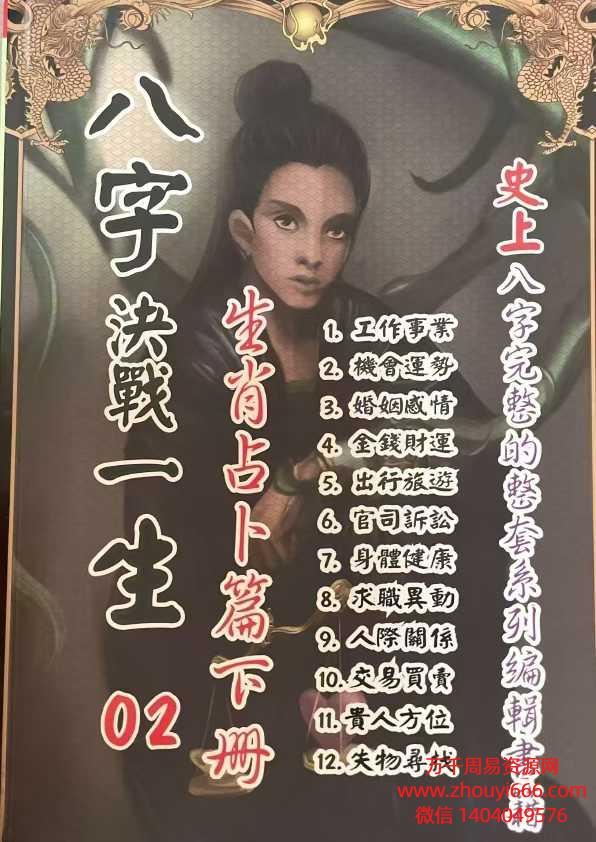 史上八字完整的整套系列編輯書籍
1. 工作事業
2. 機會運勢
3. 婚姻感情
4. 金錢財運
5. 出行旅遊
6. 官司訴訟
7. 身體健康
8. 求職異動
9. 人際關係
10. 交易買賣
11. 貴人方位
12. 失物尋找
生肖占卜篇下册
八字決戰一生 02
万千周易资源网
www.zhouyi666.com
微信 1404049576